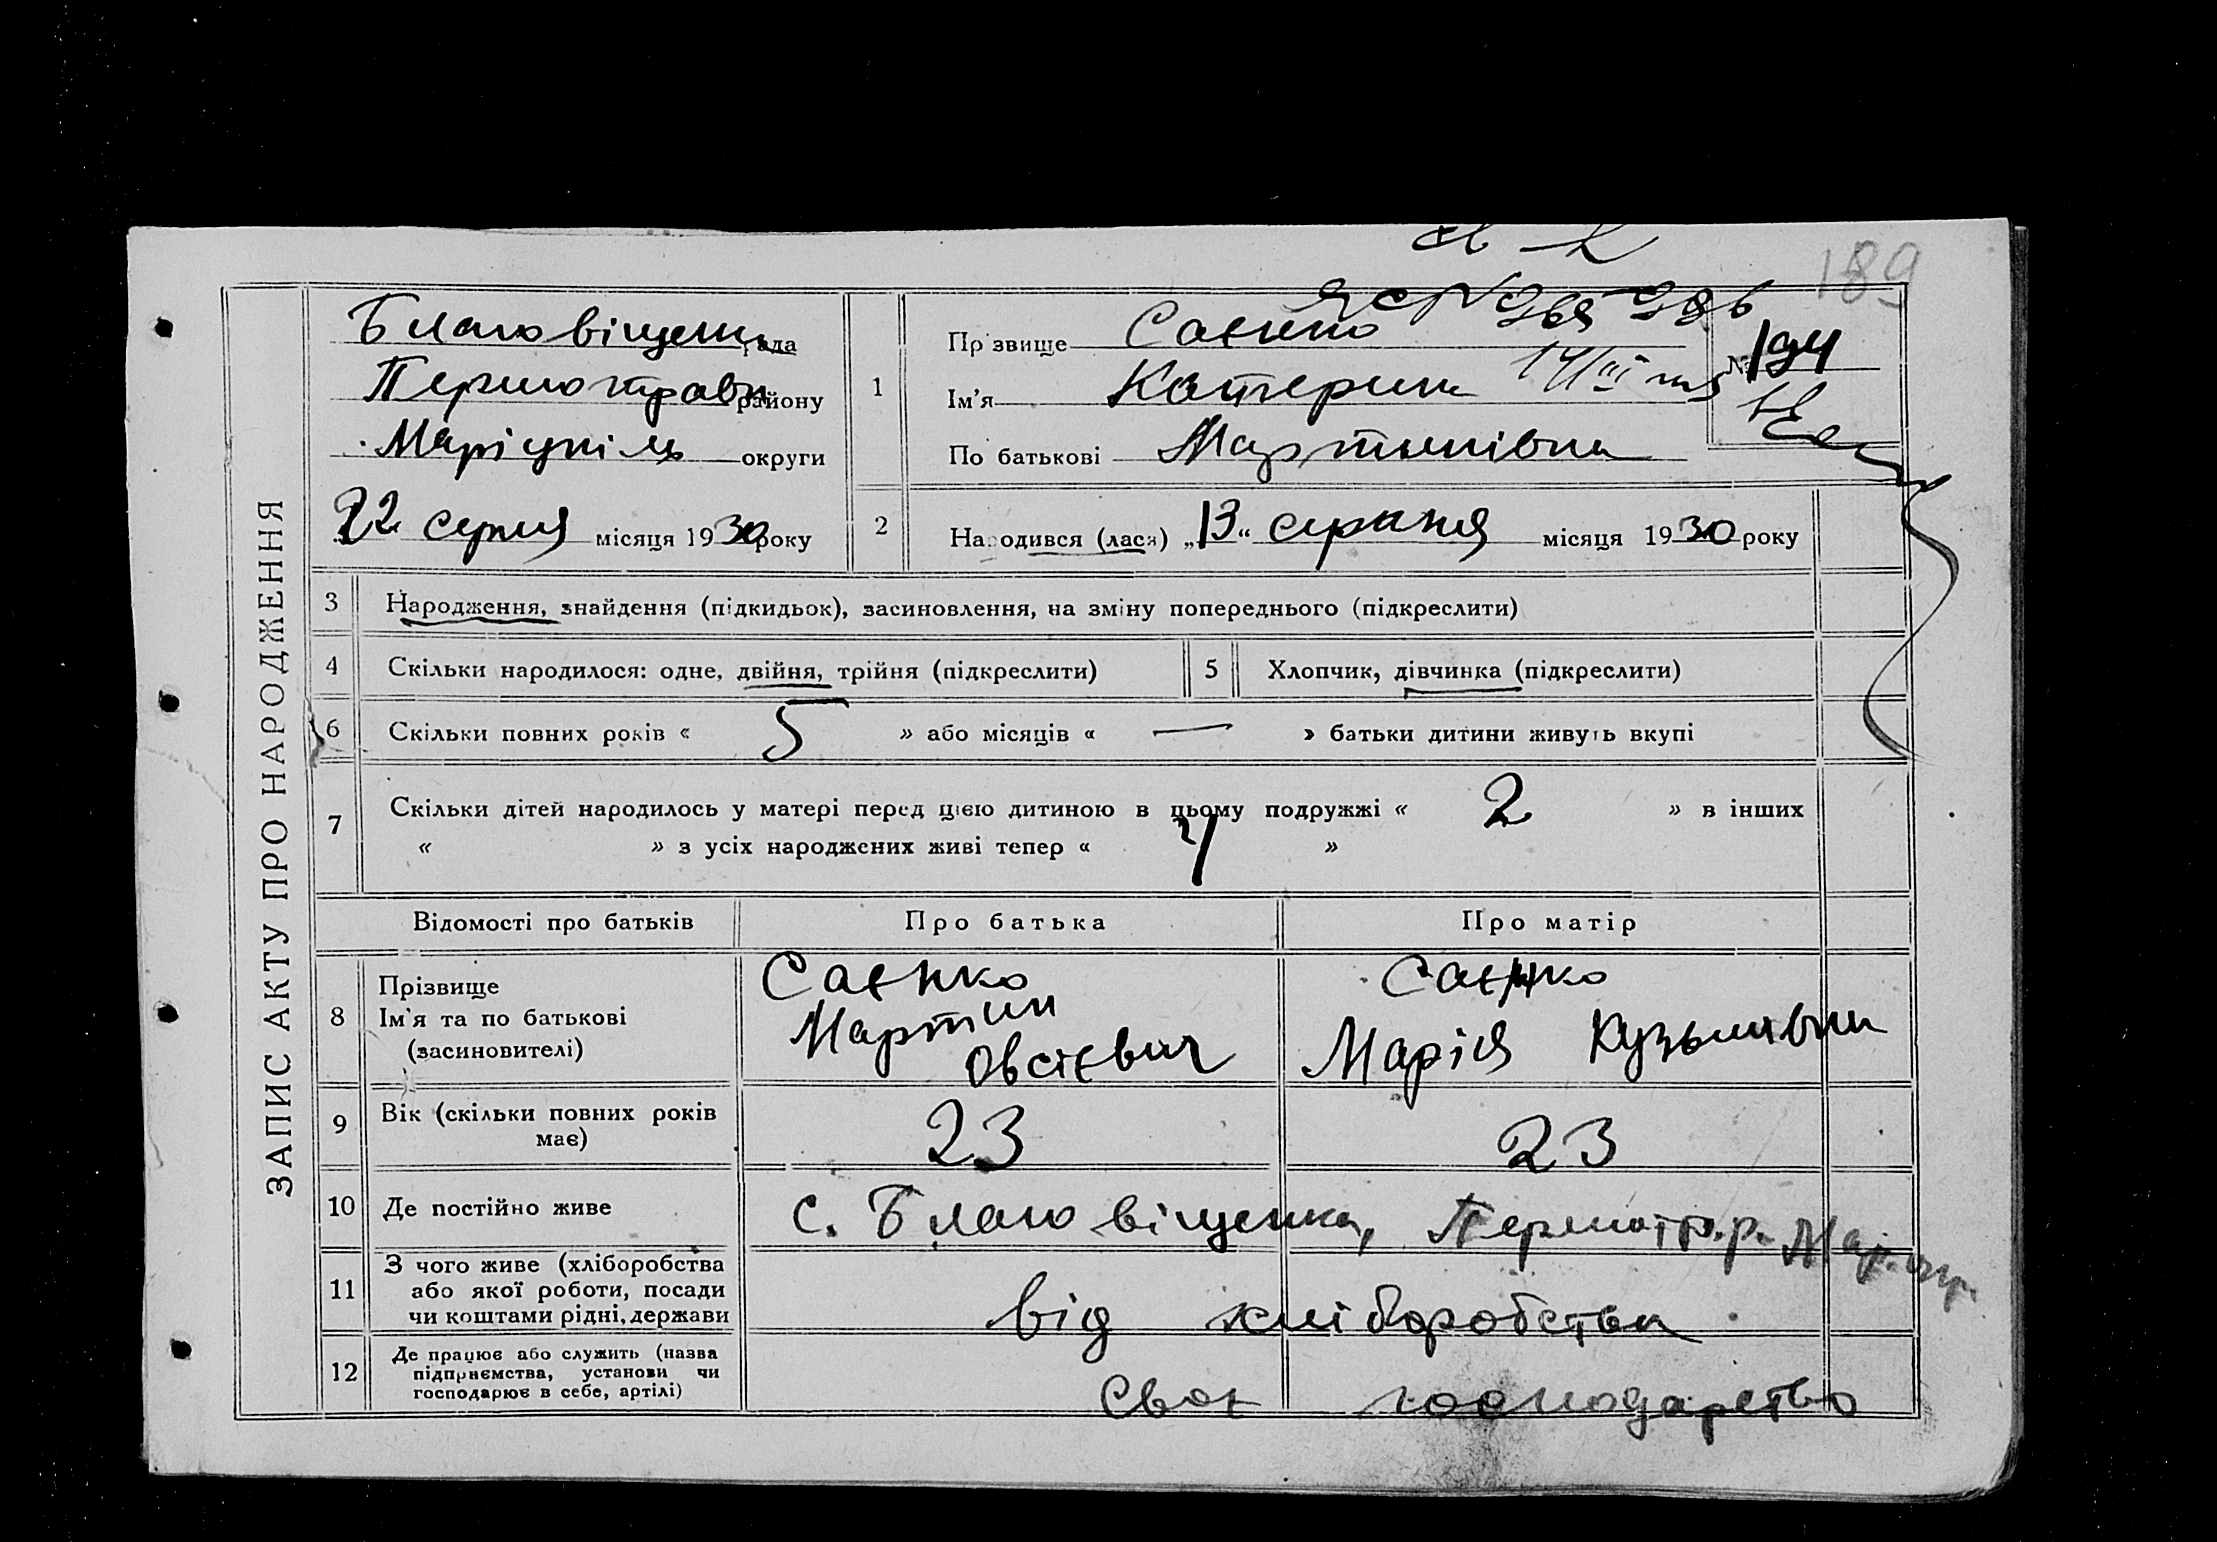 189
ЗАПИС АКТУ ПРО НАРОДЖЕННЯ
Благовіщен. рада
Першотравн району
Маріупіль округи
22 серпня місяця 1930 року
1
Прізвище Саєнко
Ім'я Катерина
По батькові Мартинівна
№ 194
2
Народився (лася) „13“ серпня місяця 1930 року
3 Народження, знайдення (підкидьок), засиновлення, на зміну попереднього (підкреслити)
4 Скільки народилося: одне, двійня, трійня (підкреслити) 5 Хлопчик, дівчинка (підкреслити)
6 Скільки повних років « 5 » або місяців « — » батьки дитини живуть вкупі
7 Скільки дітей народилось у матері перед цією дитиною в цьому подружжі « 2 » в інших
« » з усіх народжених живі тепер « 4 »
Відомості про батьків Про батька Про матір
8 Прізвище
Ім'я та по батькові
(засиновителі)
Саєнко
Мартин
Овсієвич
Саєнко
Марія Кузьмівна
9 Вік (скільки повних років
має)
23 23
10 Де постійно живе с. Благовіщенка, Першотр. р. Мар. окр.
11 З чого живе (хліборобства
або якої роботи, посади
чи коштами рідні, держави
від хліборобства
12 Де працює або служить (назва
підприємства, установи чи
господарює в себе, артілі)
своє господарство